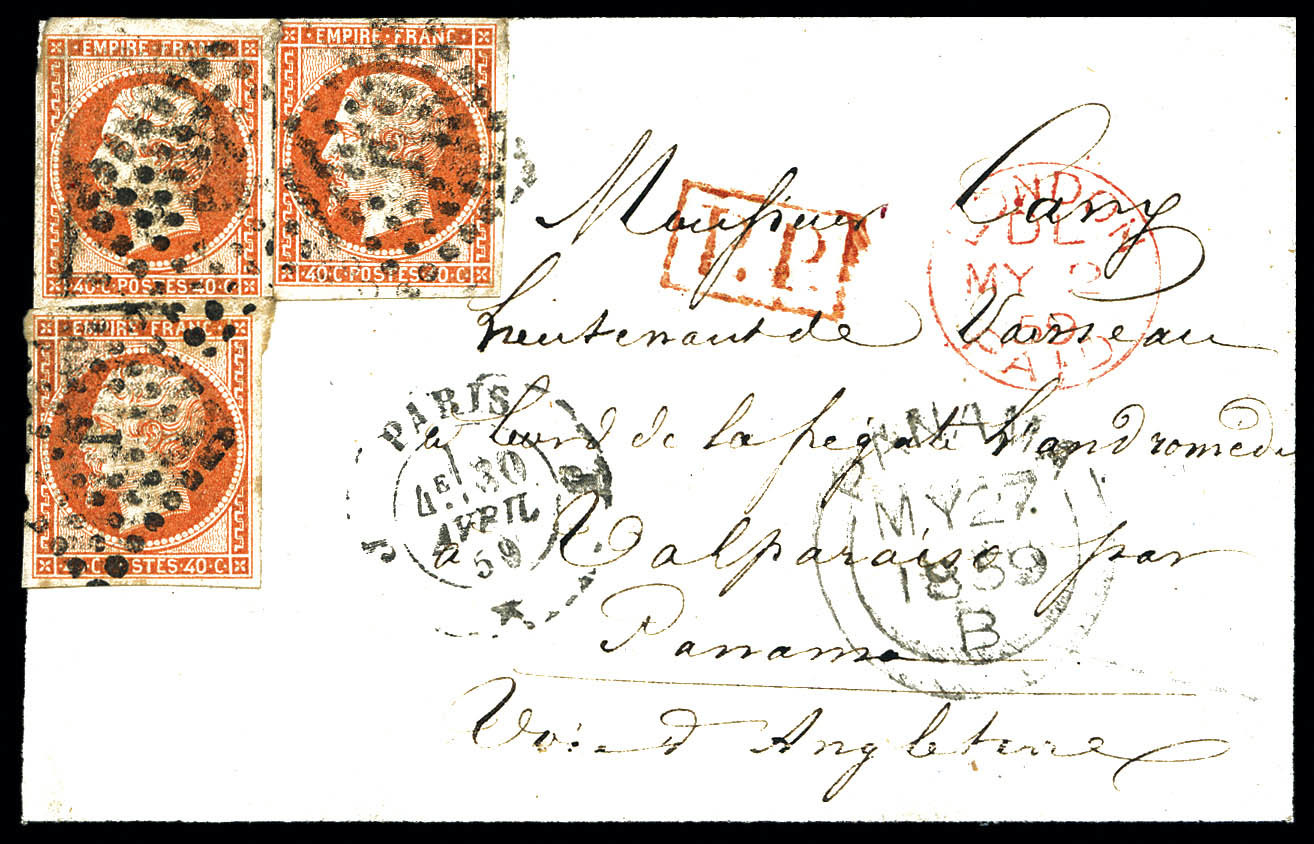 EMPIRE FRANC
40 C POSTES 40 C
EMPIRE FRANC
40 C POSTES 40 C
EMPIRE FRANC
C POSTES 40 C
P.P.
LONDON
MY 2
59
PAID
PARIS
4E 30
AVRIL
59
PANAMA
MY 27
1859
B
Monsieur Cany
Lieutenant de Vaisseau
a bord de la frégate L'andromède
a Valparaiso par
Panama
Voie d'Angleterre